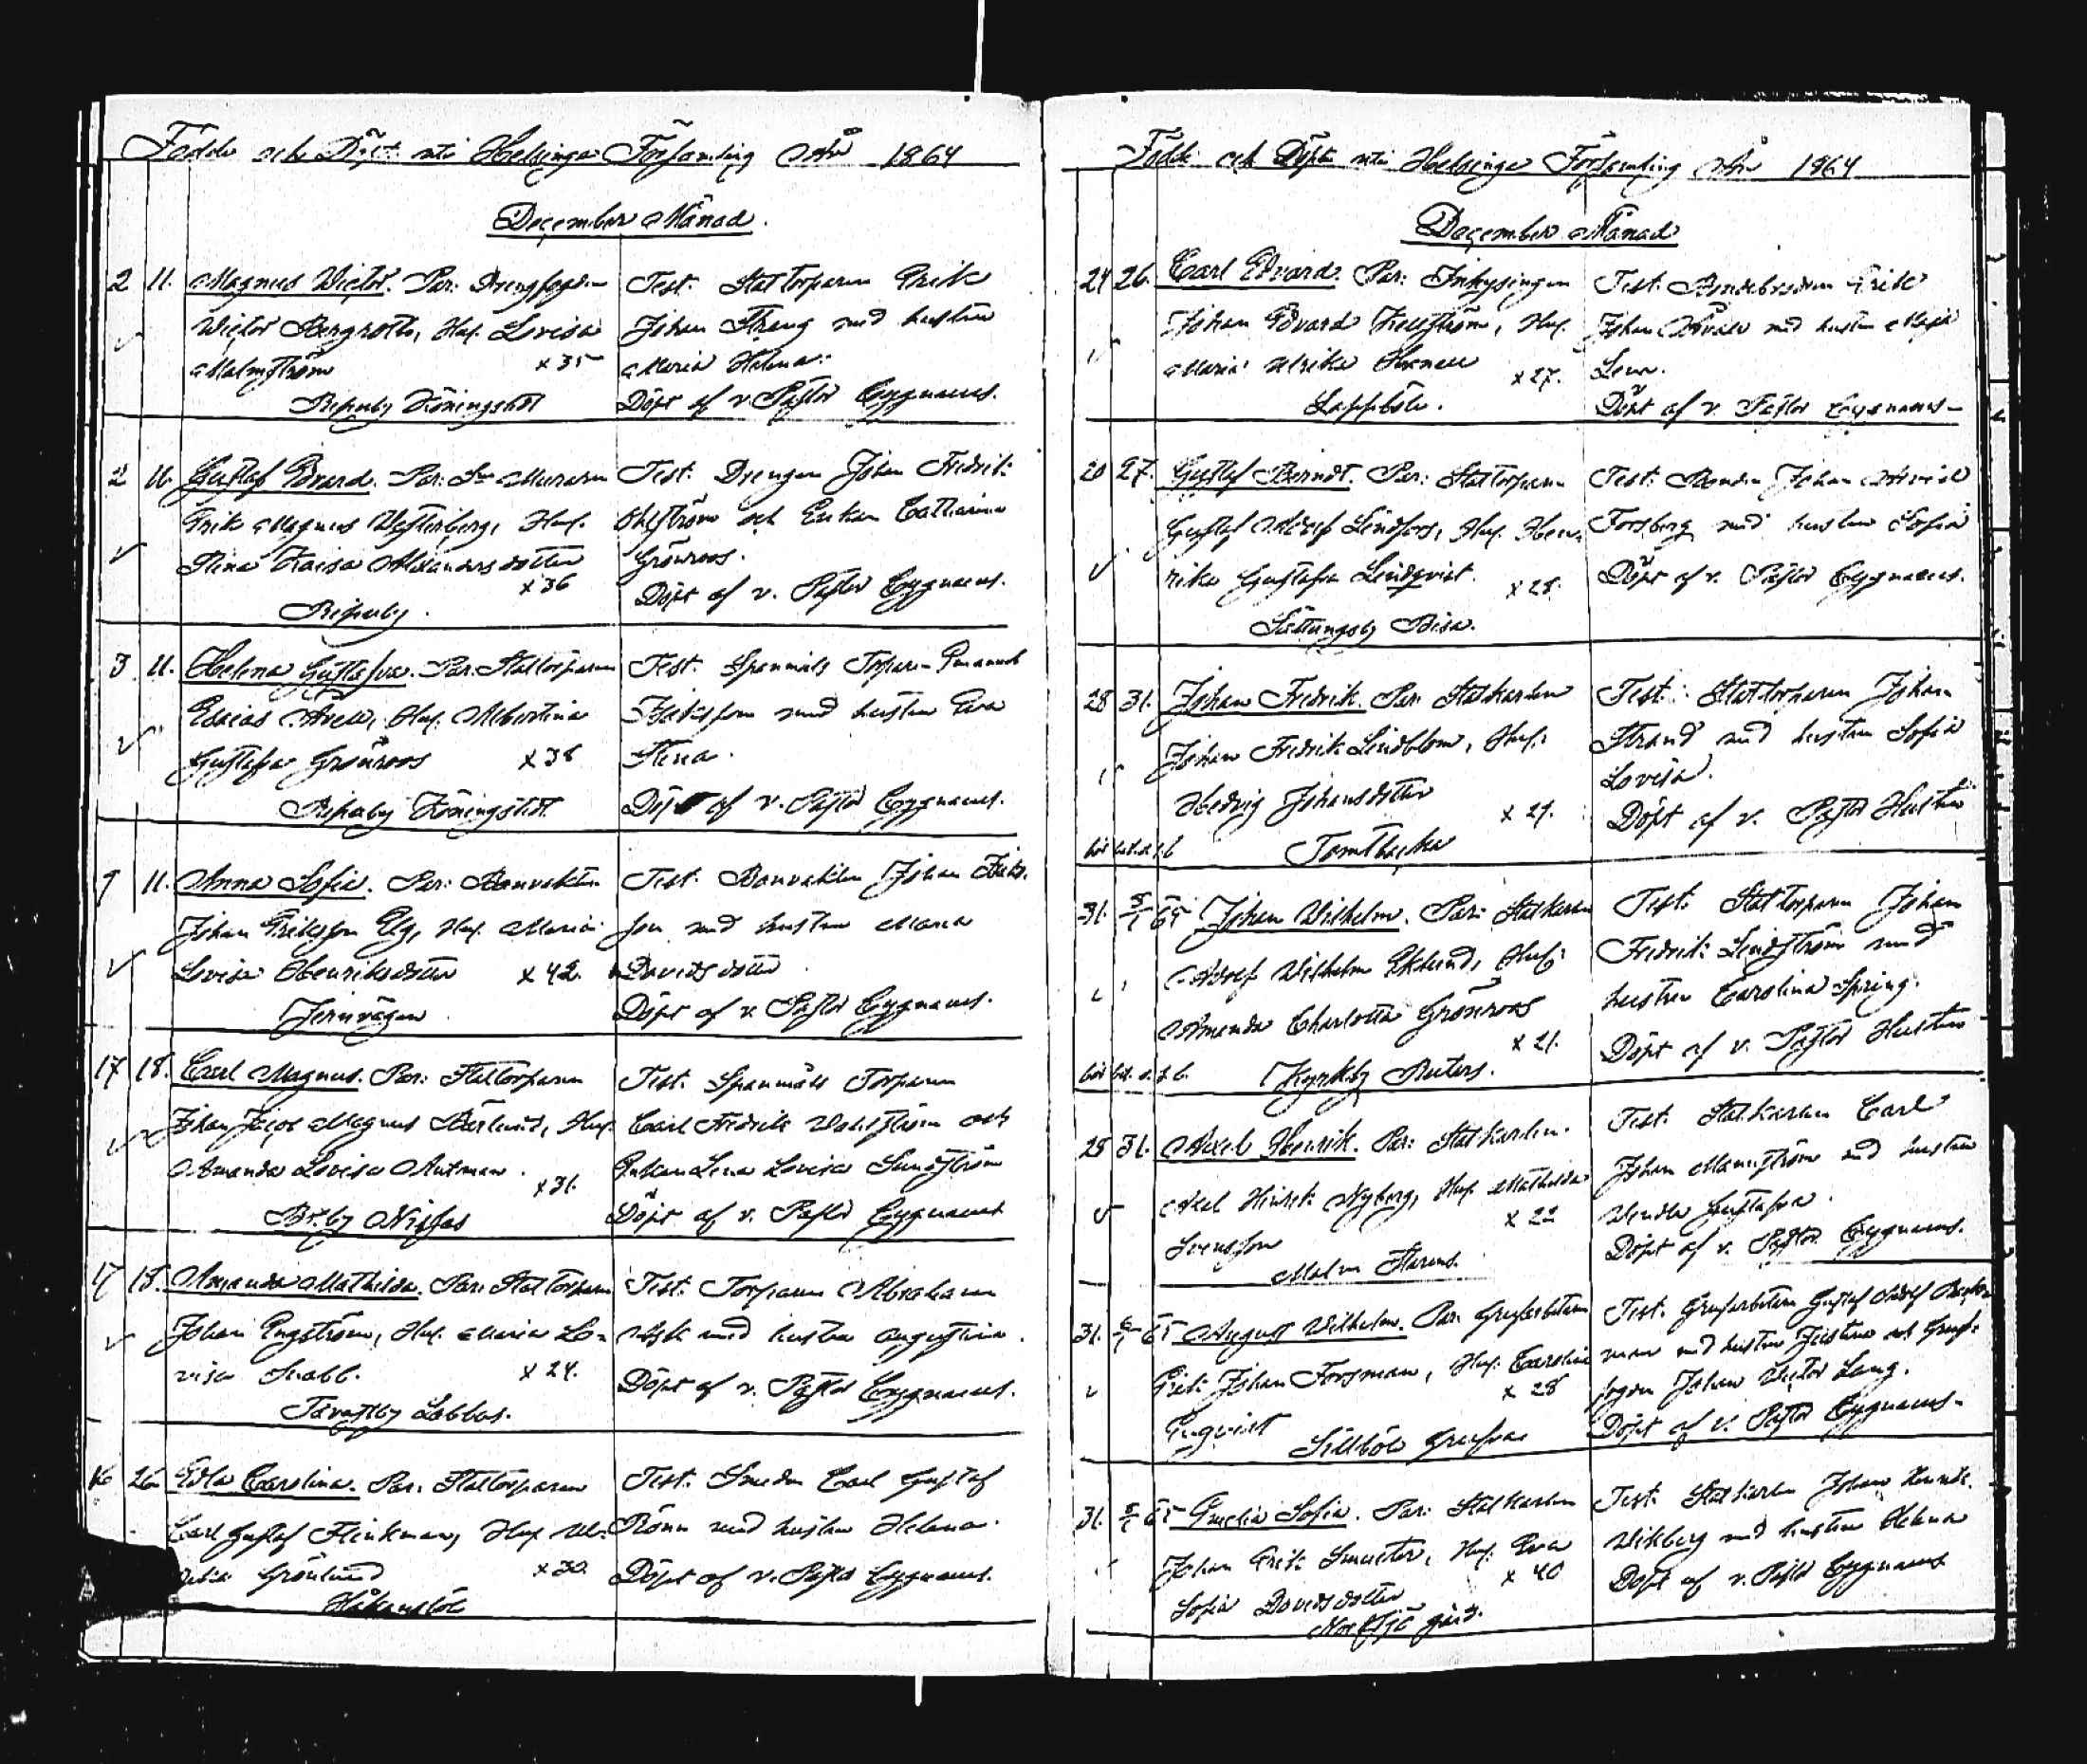 Födde och Döpte uti Helsinge Församling År 1864
December Månad.
2 11. Magnus Victor. Par: Drengfogden
Victor Bergroth, Hus. Lovisa
Malmström x 35
Biskuby Köningstedt
Test. Stattorparen Erik
Johan Strang med hustru
Maria Helena.
Döpt af v. Pastor Cygnaeus.
2 11. Gustaf Edvard. Par: Sn Muraren
Erik Magnus Westerberg, Hus.
Stina Kaisa Alexandersdotter
x 36
Test. Drengen Johan Fredrik
Öhlström och Enkan Catharina
Grönroos.
Döpt af v. Pastor Cygnaeus.
3 11. Helena Gustafva. Par: Stattorparen
Esaias Avell, Hus. Albertina
Gustafva Grönroos x 38
Köningstedt
Test. Spanmåls Torparen Emanuel
med hustru Eva
Stina.
Döpt af v. Pastor Cygnaeus.
7 11. Anna Sofia. Par: Banvakten
Johan Eriksson Elg, Hus. Maria
Lovisa Henriksdotter x 42.
Jernvägen
Test. Banvakten Johan
son med hustru Maria
Davidsdotter
Döpt af v. Pastor Cygnaeus.
17 18. Carl Magnus. Par: Stattorparen
Johan Jacob Magnus Bärlund, Hus.
Amanda Lovisa Autman. x 31.
Br.by Nissas
Test. Spanmåls Torparen
Carl Fredrik Wahlström och
Enkan Lena Lovisa Sundström
Döpt af v. Pastor Cygnaeus
17 18. Amanda Mathilda. Par: Stattorparen
Johan Engström, Hus. Maria Lo-
visa x 24.
Tavastby Labbas.
Test. Torparen Abraham
Ask med hustru Augustina.
Döpt af v. Pastor Cygnaeus.
16 26 Edla Carolina. Par: Stattorparen
Carl Gustaf Flinkman, Hus. Ul-
Grönlund x 30.
Håkansböle
Test. Smeden Carl Gustaf
Rönn med hustru Helena.
Döpt af v. Pastor Cygnaeus.
Födde och Döpte uti Helsinge Församling År 1864
December Månad
24 26. Carl Edvard. Par: Inhysingen
Johan Edvard Hellström, Hus.
Maria Ulrika x 27.
Lappböle.
Test. Bondebrodren Erik
Johan med hustru Maja
Lena.
Döpt af v. Pastor Cygnaeus
20 27. Gustaf Berndt. Par: Stattorparen
Gustaf Adolf Lindfors, Hus. Hen-
rika Gustafva Lindqvist. x 28.
Sättungsby Bisa.
Test: Bonden Johan Arvid
Forsberg med hustru Sofia
Döpt af v. Pastor Cygnaeus.
28 31. Johan Fredrik. Par: Statkarlen
Johan Fredrik Lindblom, Hus.
Hedvig Johansdotter x 21.
Tomtbacka
Test: Stattorparen Johan
Strand med hustru Sofia
Lovisa.
Döpt af v. Pastor
31. 5/1 65 Johan Wilhelm. Par: Statkarlen
Adolf Wilhelm Eklund, Hus.
Amanda Charlotta Grönroos
x 21.
Kyrkby Ruters.
Test: Stattorparen Johan
Fredrik Lindström med
hustru Carolina Spring.
Döpt af v. Pastor
28 31. Axel Henrik. Par: Statkarlen
Axel Hinrik Nyberg, Hus. Mathilda
x 22
Svensson
Malm
Test: Statkarlen Carl
Johan Malmström med hustru
Wendla Gustafva.
Döpt af v. Pastor Cygnaeus.
31. 6/1 65 August Wilhelm. Par: Grufarbetaren
Erik Johan Forsman, Hus. Carolina
x 28
Enqvist
Sillböle Grufva
Test: Grufarbetaren Gustaf Adolf
man med hustru Justina och Gruf-
fogden Johan Victor Lang.
Döpt af v. Pastor Cygnaeus.
31. 65 Emelia Sofia. Par: Statkarlen
Johan Erik Smuster, Hus. Eva
x 40
Sofia Davidsdotter
gård.
Test: Statkarlen Johan Henrik
Wikberg med hustru Helena
Döpt af v. Pastor Cygnaeus